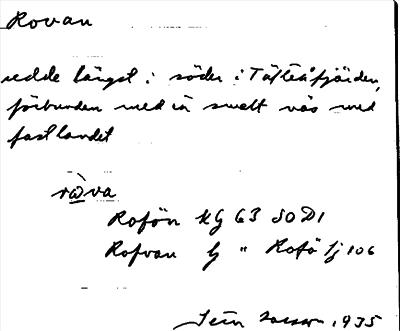 Rovan
udde längst i söder i Täfteåfjärden,
förbunden med ett smalt näs med
fastlandet
råva
Rofön KG 63 SO D1
Rofvan G " Rofö Sj 106
1935